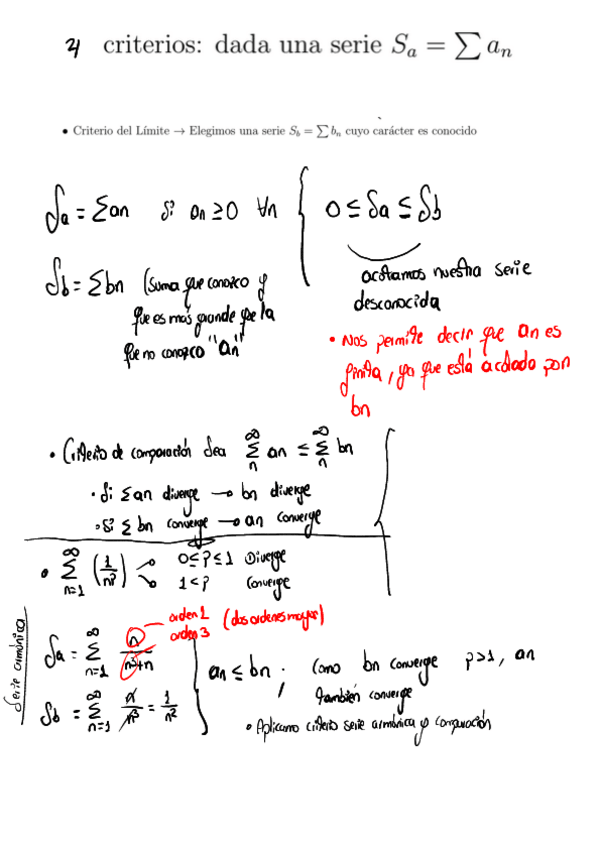 4 criterios: dada una serie Sa = ∑ an
• Criterio del Límite → Elegimos una serie Sb = ∑ bn cuyo carácter es conocido
Sa = ∑an si an ≥ 0 ∀n { 0 ≤ Sa ≤ Sb
acotamos nuestra serie
desconocida
Sb = ∑bn (suma que conozco y
que es más grande que la
que no conozco "an"
• Nos permite decir que an es
finita, ya que está acotado por
bn
• Criterio de comparación Sea ∞ ∑ n an ≤ ∞ ∑ n bn
• Si ∑an diverge → bn diverge
• si ∑ bn converge → an converge
• ∞ ∑ n=1 (1/n^p) 0≤p≤1 Diverge
1<p Converge
Serie armónica
orden 1 (dos ordenes mayor)
orden 3
Sa = ∞ ∑ n=1 n/(n³+n)
Sb = ∞ ∑ n=1 n/n³ = 1/n²
an ≤ bn ; Como bn converge p>1, an
también converge
• Aplicamo criterio serie armónica y comparación